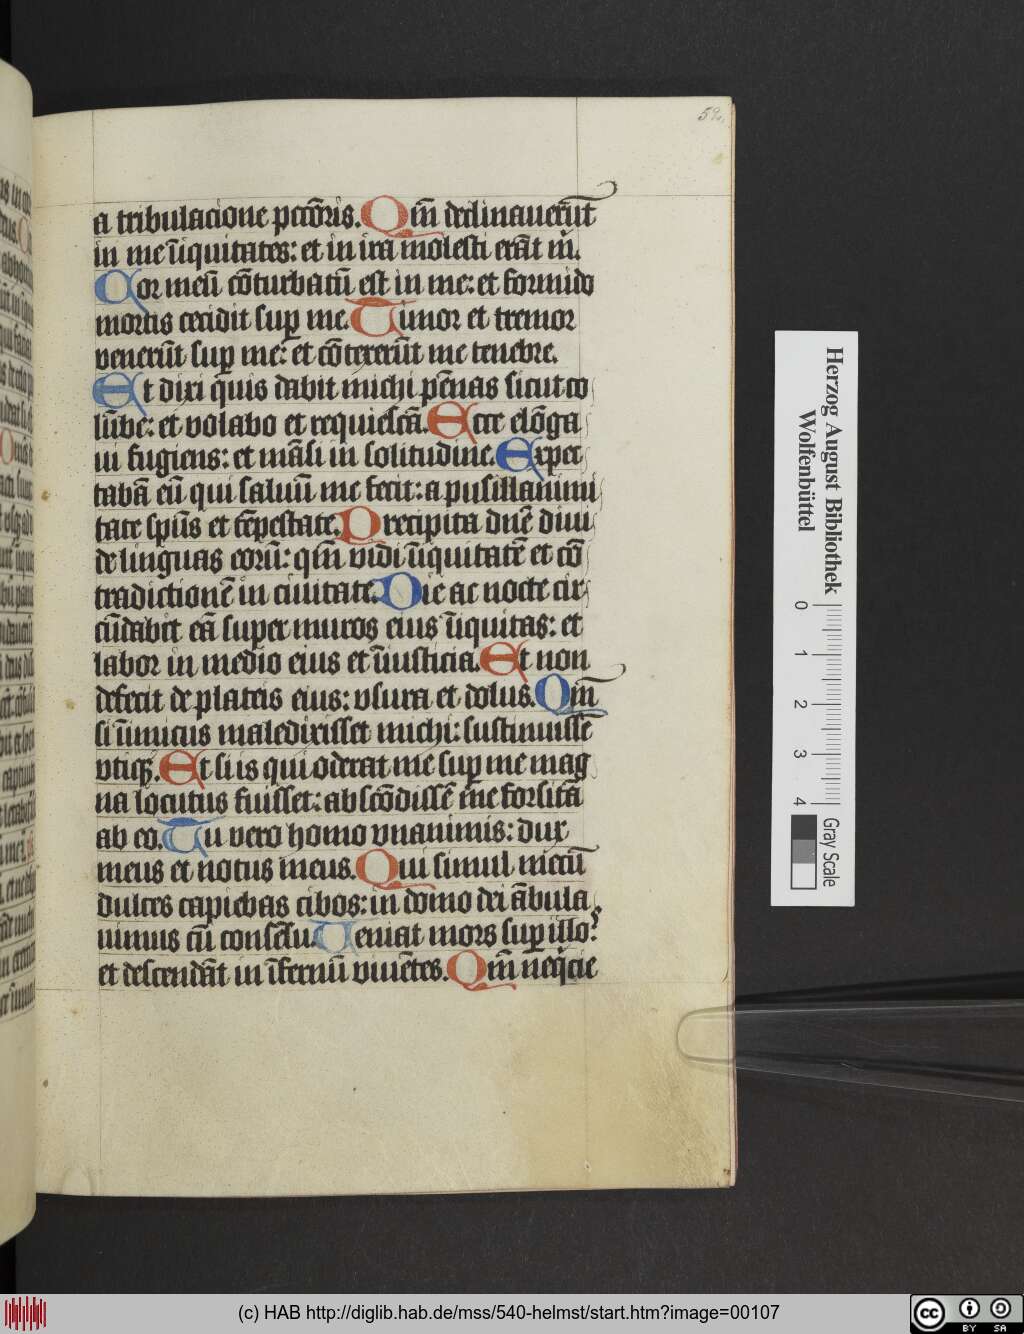 52.
a tribulacione pcc̄oris. Qm̄ declinauerūt
in me īiquitates: et in ira molesti erāt m̍.
Cor meū cōturbatū est in me: et formido
mortis cecidit suꝑ me. Timor et tremor
venerūt suꝑ me: et cōtexerūt me tenebre.
Et dixi quis dabit michi pēnas sicut co
lūbe: et volabo et requiescā. Ecce elōga
ui fugiens: et māsi in solitudine. Expec
tabā eū qui saluū me fecit: a pusillanimi
tate spūs et tēpestate. Precipita dnē diui
de linguas eorū: qm̄ vidi īiquitatē et cō
tradictionē in ciuitate. Die ac nocte cir
cūdabit eā super muros eius īiquitas: et
labor in medio eius et īiusticia. Et non
defecit de plateis eius: vsura et dolus. Qm̄
si īimicus maledixisset michi: sustinuissē
vtiqꝫ. Et si is qui oderat me suꝑ me mag
na locutus fuisset: abscōdissē me forsitā
ab eo. Tu vero homo vnanimis: dux
meus et notus meus. Qui simul mecū
dulces capiebas cibos: in domo dei ābula
uimus cū consēsu. Ueniat mors suꝑ illos:
et descendāt in īfernū viuētes. Qm̄ neq̍cie
Herzog August Bibliothek
Wolfenbüttel
0 1 2 3 4
Gray Scale
(c) HAB http://diglib.hab.de/mss/540-helmst/start.htm?image=00107
cc BY SA